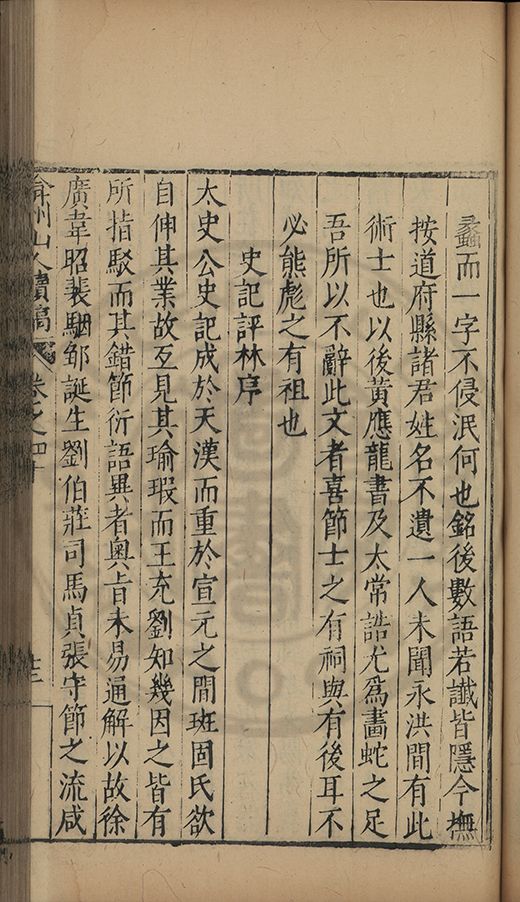 蠡而一字不侵泯何也銘後數語若讖皆隱今撫
按道府縣諸君姓名不遺一人未聞永洪間有此
術士也以後黄應龍書及太常誥尤爲畫蛇之足
吾所以不辭此文者喜節士之有祠與有後耳不
必熊彪之有祖也
史記評林序
太史公史記成於天漢而重於宣元之間班固氏欲
自伸其業故互見其瑜瑕而王充劉知幾因之皆有
所指駁而其錯節衍語異者奧旨未易通解以故徐
廣韋昭裴駰鄒誕生劉伯莊司馬貞張守節之流咸
弇州山人續稿 卷之四十 十三